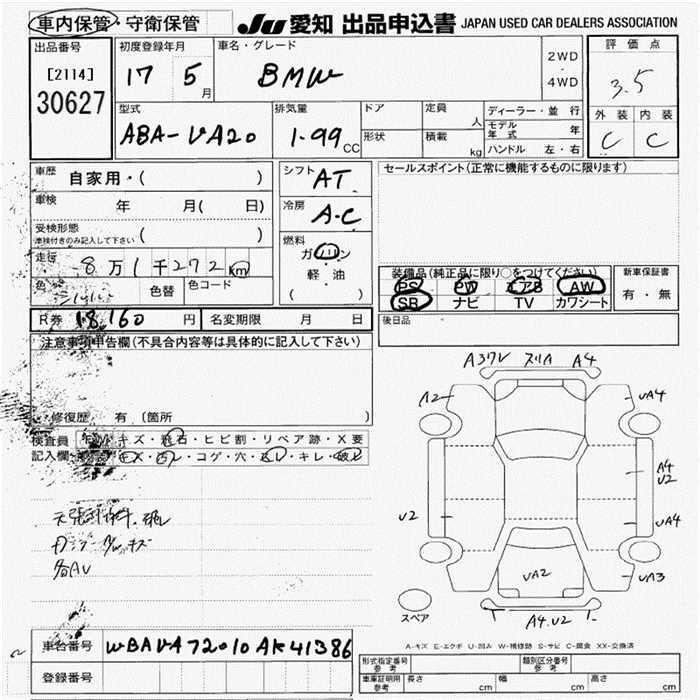 車内保管・守衛保管
JU 愛知 出品申込書 JAPAN USED CAR DEALERS ASSOCIATION
出品番号
[2114]
30627
初度登録年月
17 5月
車名・グレード
BMW
2WD
・
4WD
評価点
3.5
外装 内装
C C
型式
ABA-VA20
排気量
1.99 CC
ドア
形状
定員 人
積載 kg
ディーラー・並行
モデル年式 年
ハンドル 左・右
車歴
自家用・( )
車検 年 月( 日)
受検形態
(車検付きのみ記入して下さい) ( )
走行 8万1千272km
色 色替 色コード
シフト AT
冷房 A-C
燃料
ガソリン
軽・油
( )
セールスポイント(正常に機能するものに限ります)
装備品(純正品に限り○をつけてください)
PS PW エアB AW
SR ナビ TV カワシート
新車保証書
有・無
R券 18,160円 名変期限 月 日
後日品
注意事項申告欄(不具合内容等は具体的に記入して下さい)
修復歴 有 〔箇所
検査員記入欄
キズ・飛石・ヒビ割・リペア跡・X要
コゲ・穴・キレ・破レ
各AV
A3ワレ スリA A4
A2 UA4
A4
U2
U2 UA4
UA2 UA3
A4.U2
スペア
A-キズ E-エクボ U-凹み W-補修跡 S-サビ C-腐食 XX-交換済
車台番号 WBAVA72010AK41386
登録番号
形式指定番号 参考
類別区分番号 参考
車庫証明用 参考 長さ cm 幅 cm 高さ cm